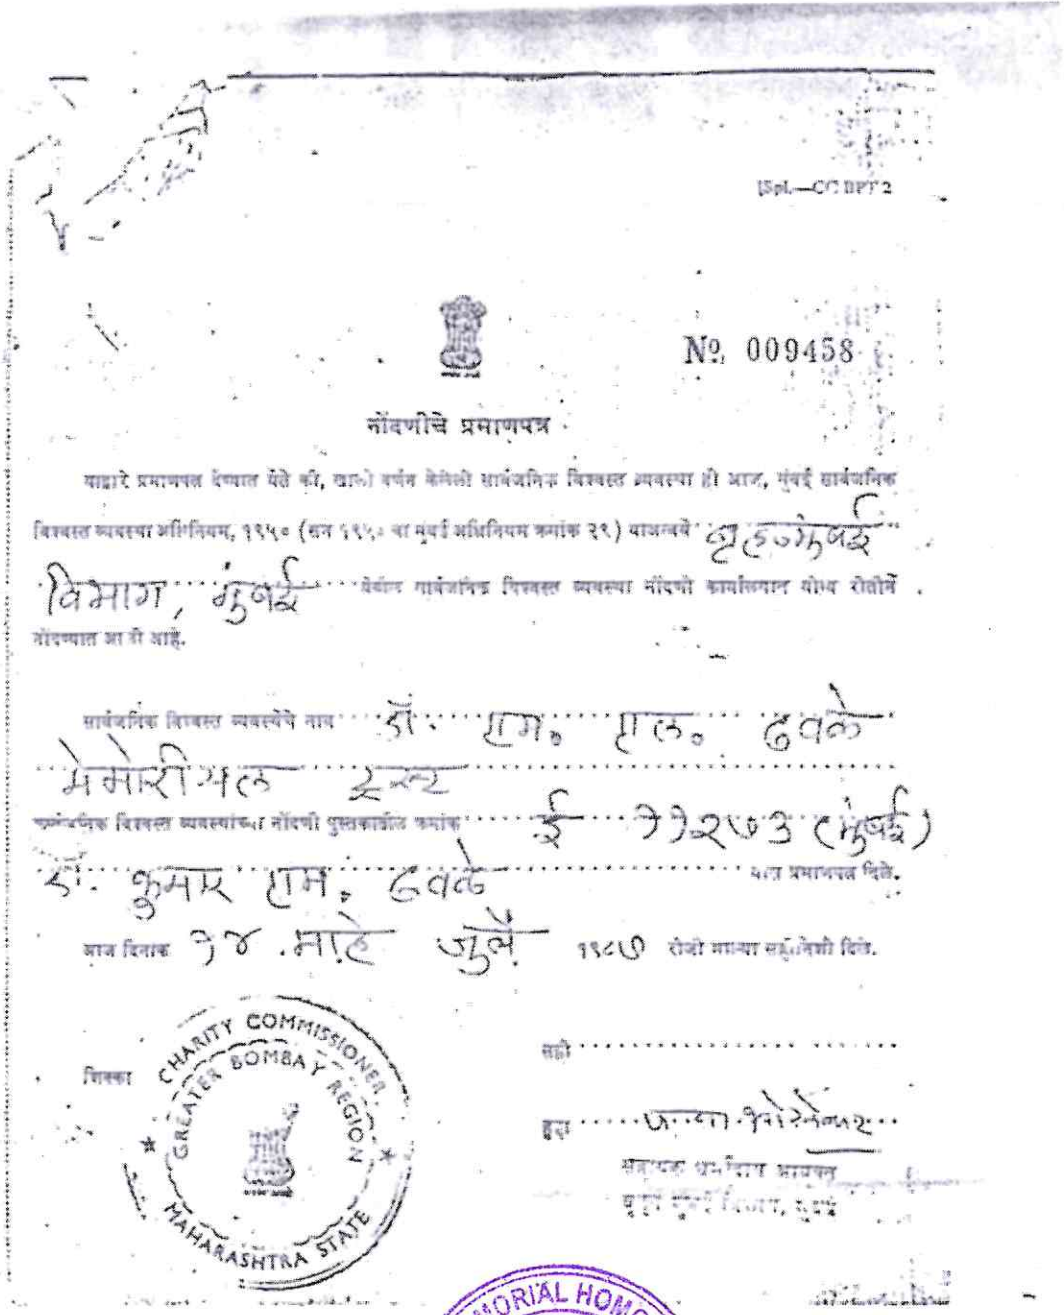 [Spl.—CC BPT 2
No. 009458
नोंदणीचे प्रमाणपत्र
याद्वारे प्रमाणपत्र देण्यात येते की, खाली वर्णन केलेली सार्वजनिक विश्वस्त व्यवस्था ही आज, मुंबई सार्वजनिक
विश्वस्त व्यवस्था अधिनियम, १९५० (सन १९५० चा मुंबई अधिनियम क्रमांक २९) याअन्वये बृहन्मुंबई
विभाग, मुंबई येथील सार्वजनिक विश्वस्त व्यवस्था नोंदणी कार्यालयात योग्य रीतीनें
नोंदण्यात आली आहे.
सार्वजनिक विश्वस्त व्यवस्थेचे नाव डॉ. एम. एल. ढवळे
मेमोरीयल ट्रस्ट
सार्वजनिक विश्वस्त व्यवस्थांच्या नोंदणी पुस्तकातील क्रमांक ई ११२७३ (मुंबई)
डॉ. कुमार एम. ढवळे यांना प्रमाणपत्र दिले.
आज दिनांक १४ माहे जुलै १९८७ रोजी माझ्या सहीनिशी दिले.
CHARITY COMMISSIONER
GREATER BOMBAY REGION
MAHARASHTRA STATE
शिक्का
सही
हुद्दा
सहायक धर्मादाय आयुक्त
बृहन्मुंबई विभाग, मुंबई
MORIAL HOMO